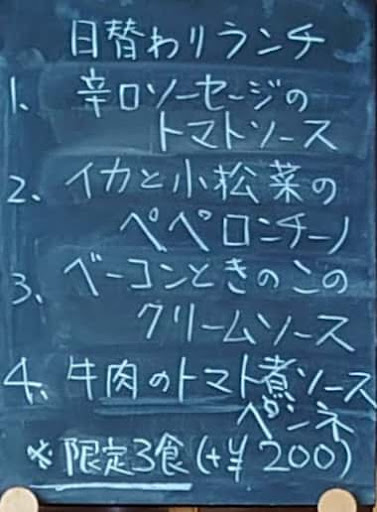 日替わりランチ
1、辛口ソーセージの
トマトソース
2、イカと小松菜の
ペペロンチーノ
3、ベーコンときのこの
クリームソース
4、牛肉のトマト煮ソース
ペンネ
※限定3食(+¥200)